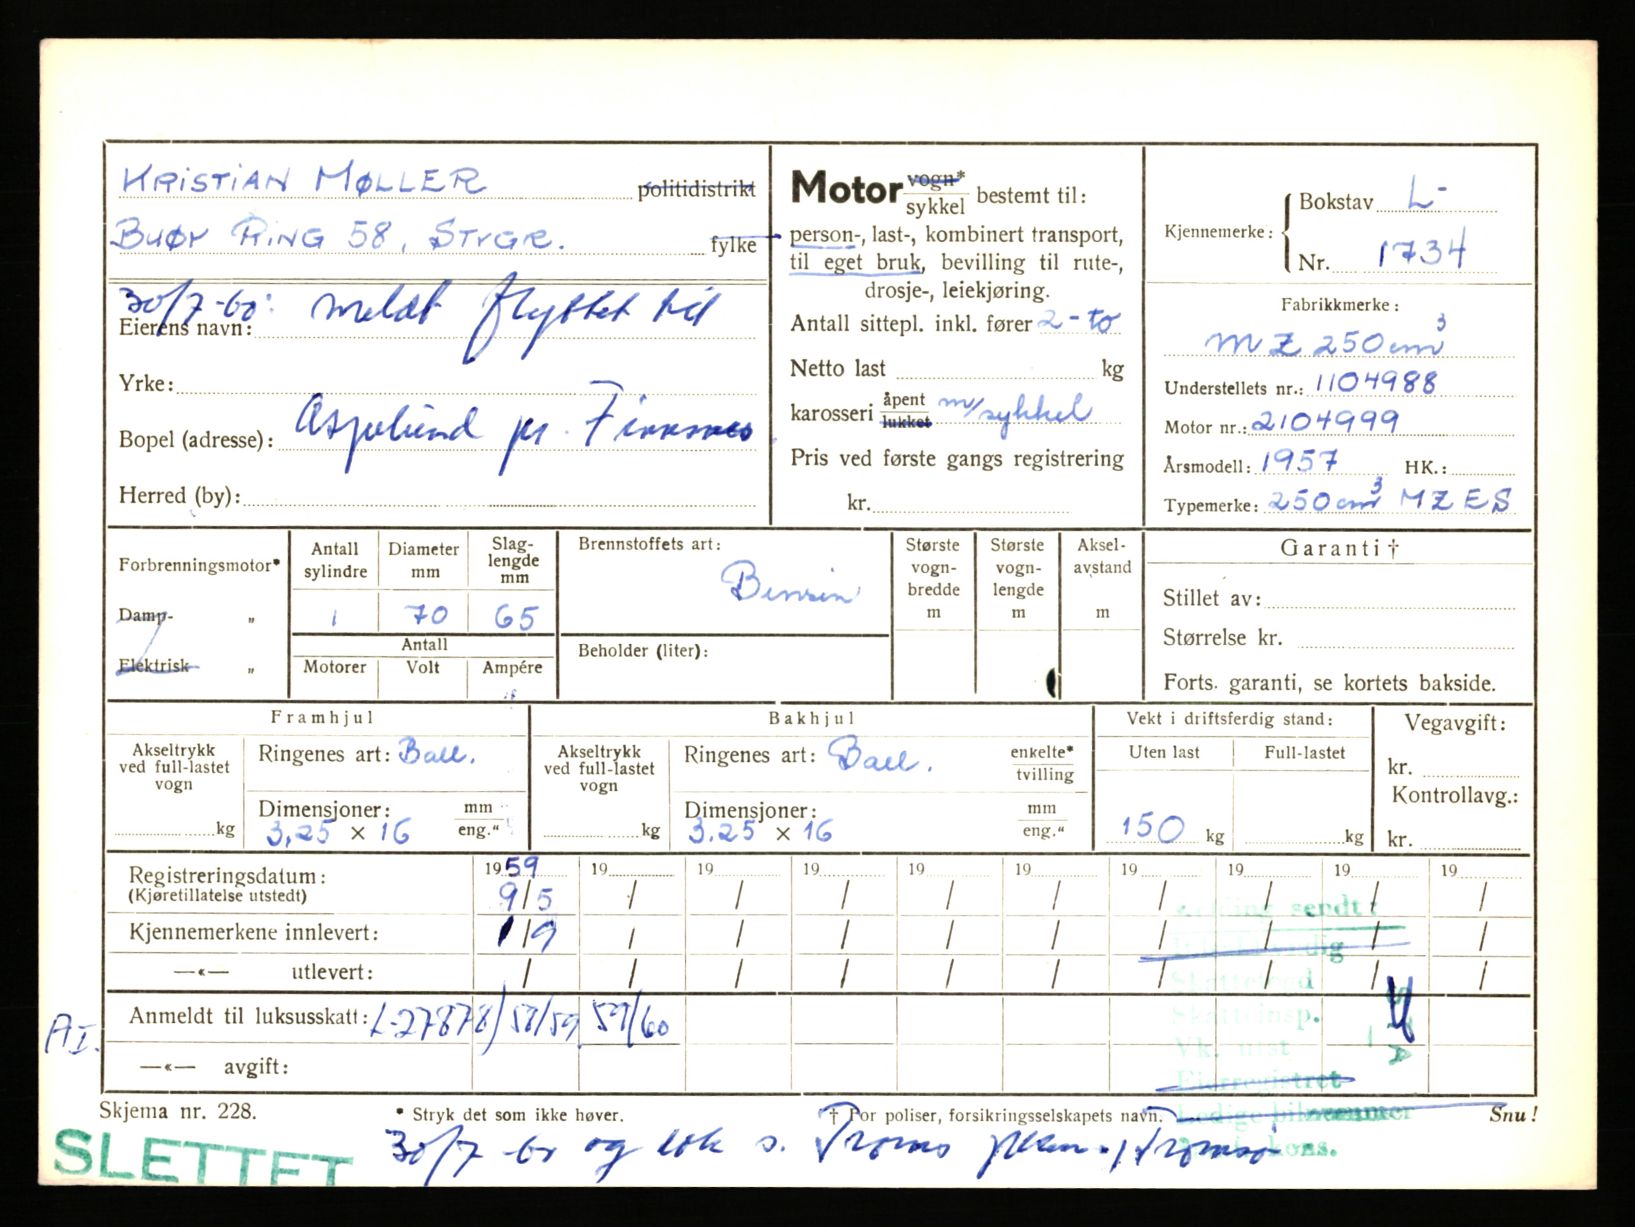 KRISTIAN MØLLER politidistrikt
BUØY RING 58, STVGR. fylke
30/7-60: meldt flyttet til
Eierens navn:
Yrke:
Bopel (adresse): pr. Finnsnes
Herred (by):
Motor vogn* sykkel bestemt til:
person-, last-, kombinert transport,
til eget bruk, bevilling til rute-,
drosje-, leiekjøring.
Antall sittepl. inkl. fører 2 - to
Netto last kg
karosseri åpent lukket m/sykkel
Pris ved første gangs registrering
kr.
Kjennemerke: Bokstav L-
Nr. 1734
Fabrikkmerke:
MZ 250 cm3
Understellets nr.: 1104988
Motor nr.: 2104999
Årsmodell: 1957 HK.:
Typemerke: 250 cm3 MZ ES
Forbrenningsmotor*
Damp- „
Elektrisk „
Antall sylindre 1
Diameter mm 70
Slag-lengde mm 65
Antall
Motorer Volt Ampére
Brennstoffets art:
Bensin
Beholder (liter):
Største vogn-bredde m
Største vogn-lengde m
Aksel-avstand m
Garanti †
Stillet av:
Størrelse kr.
Forts. garanti, se kortets bakside.
Framhjul
Akseltrykk ved full-lastet vogn kg
Ringenes art: Ball.
Dimensjoner: mm eng."
3,25 × 16
Bakhjul
Akseltrykk ved full-lastet vogn kg
Ringenes art: Ball. enkelte* tvilling
Dimensjoner: mm eng."
3.25 × 16
Vekt i driftsferdig stand:
Uten last Full-lastet
150 kg kg
Vegavgift:
kr.
Kontrollavg.:
kr.
Registreringsdatum: 1959 19 19 19 19 19 19 19 19 19
(Kjøretillatelse utstedt) 9/5 / / / / / / / / /
Kjennemerkene innlevert: 1/9 / / / / / / / / /
—«— utlevert: / / / / / / / / / /
Anmeldt til luksusskatt: L-27878/58/59 59/60
AI.
—«— avgift:
sendt:
Skattefogd
Skatteinsp.
Vk. utst
Eierregistret
Ledige bilnummer
Skjema nr. 228. * Stryk det som ikke høver. † For poliser, forsikringsselskapets navn. Snu!
SLETTET
30/7-60 og s. Troms